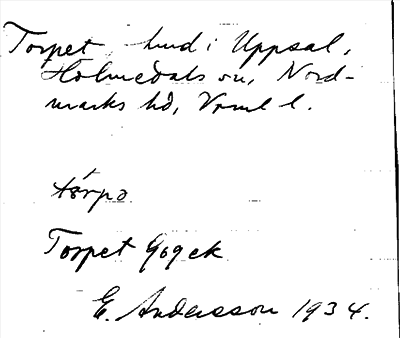 Torpet hmd i Uppsal,
Holmedals sn, Nord-
marks hd, Vrml l.
tórpə
Torpet Gogek
E. Andersson 1934.